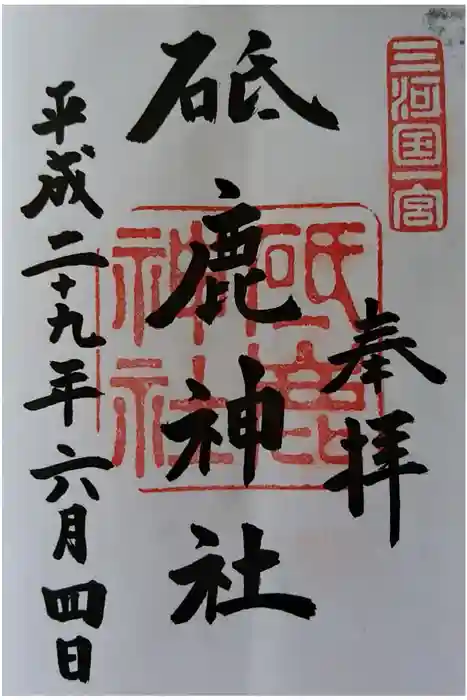 三河国一宮
奉拝
砥鹿神社
砥鹿神社
平成二十九年六月四日